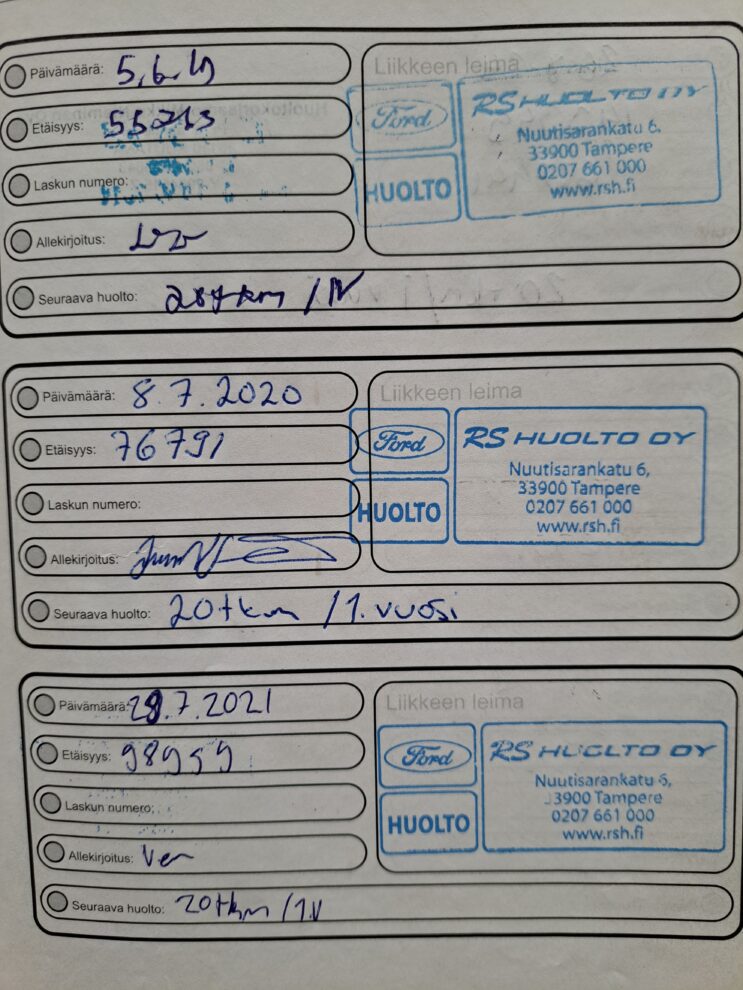 Päivämäärä: 5.6.19
Liikkeen leima
Etäisyys: 55213
Ford
RS HUOLTO OY
Nuutisarankatu 6,
33900 Tampere
0207 661 000
www.rsh.fi
HUOLTO
Laskun numero:
Allekirjoitus:
Seuraava huolto: 20tkm / 1V
Päivämäärä: 8.7.2020
Liikkeen leima
Etäisyys: 76791
Ford
RS HUOLTO OY
Nuutisarankatu 6,
33900 Tampere
0207 661 000
www.rsh.fi
HUOLTO
Laskun numero:
Allekirjoitus:
Seuraava huolto: 20tkm /1. vuosi
Päivämäärä: 29.7.2021
Liikkeen leima
Etäisyys: 98959
Ford
RS HUOLTO OY
Nuutisarankatu 6,
33900 Tampere
0207 661 000
www.rsh.fi
HUOLTO
Laskun numero:
Allekirjoitus:
Seuraava huolto: 20tkm /1.V